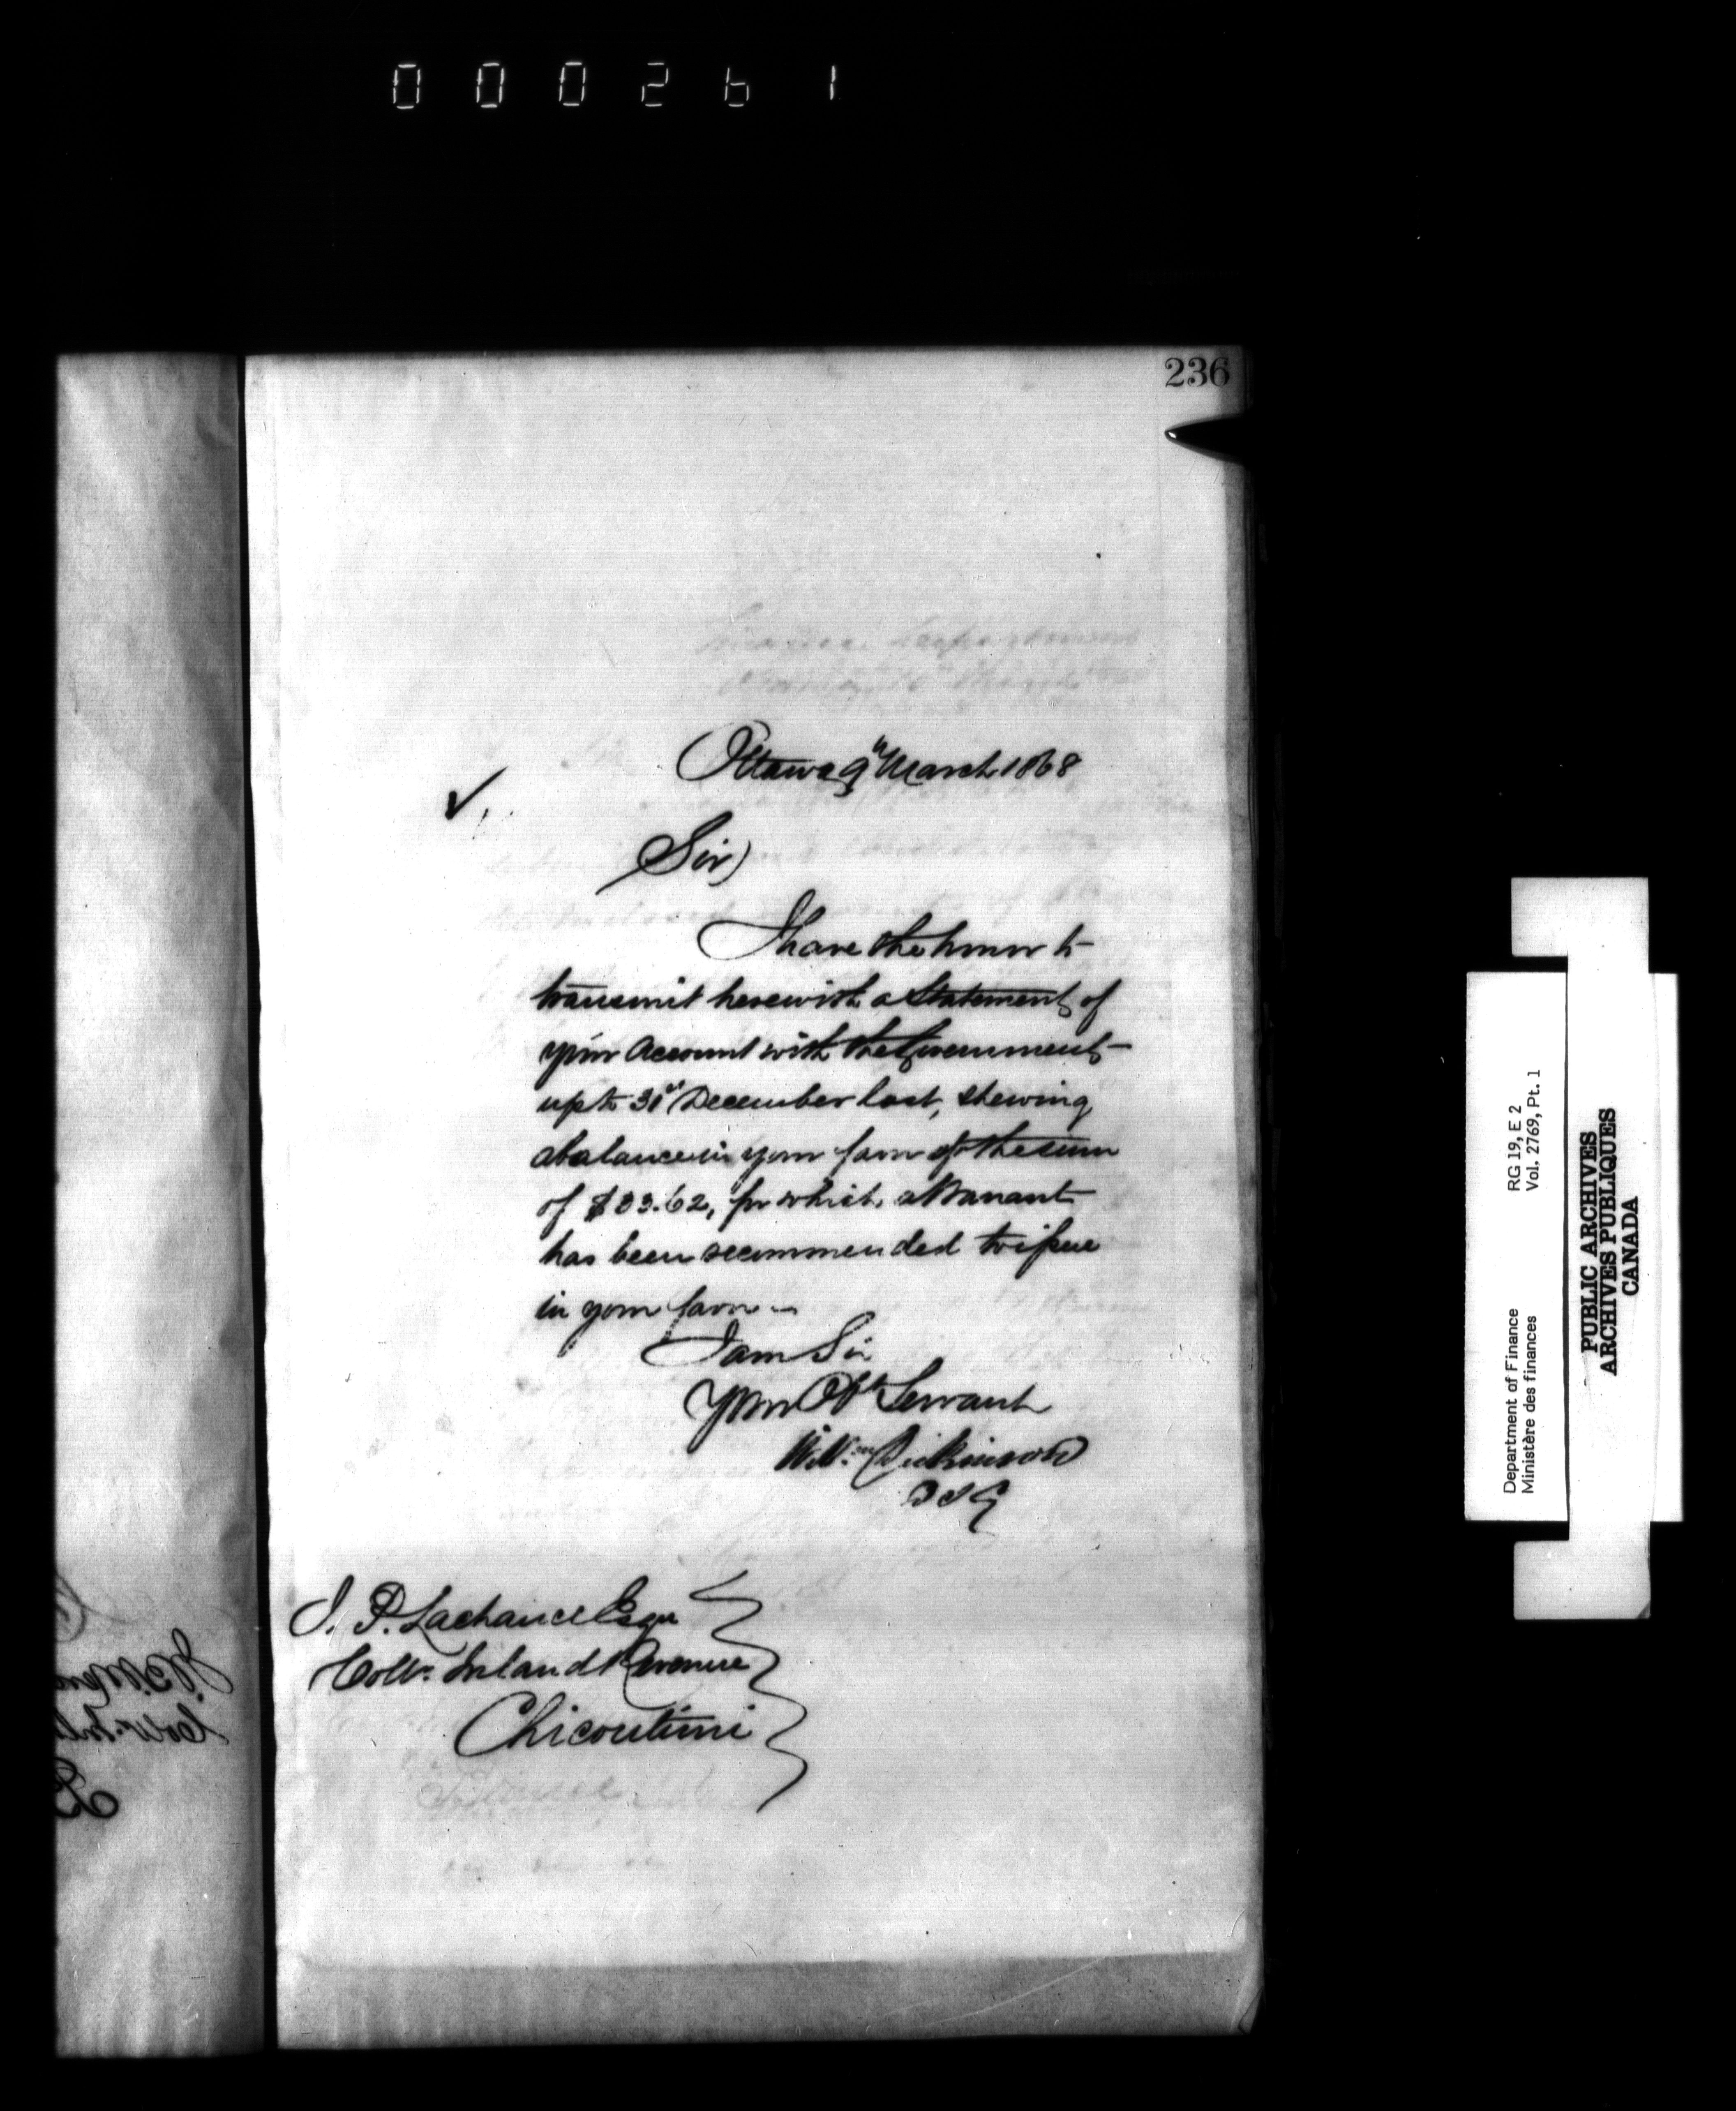 000261
236
Ottawa 9th March 1868
Sir
I have the honor to
transmit herewith a Statement of
your Account with the Government
up to 31st December last, shewing
a balance in your favor of the sum
of $83.62, for which a Warrant
has been recommended to issue
in your favor
I am Sir
Your Obt Servant
Wm Dickinson
D I G
J. P. Lachance Esqr
Collr. Inland Revenue
Chicoutimi
Department of Finance RG 19, E 2
Ministère des finances Vol. 2769, Pt. 1
PUBLIC ARCHIVES
ARCHIVES PUBLIQUES
CANADA